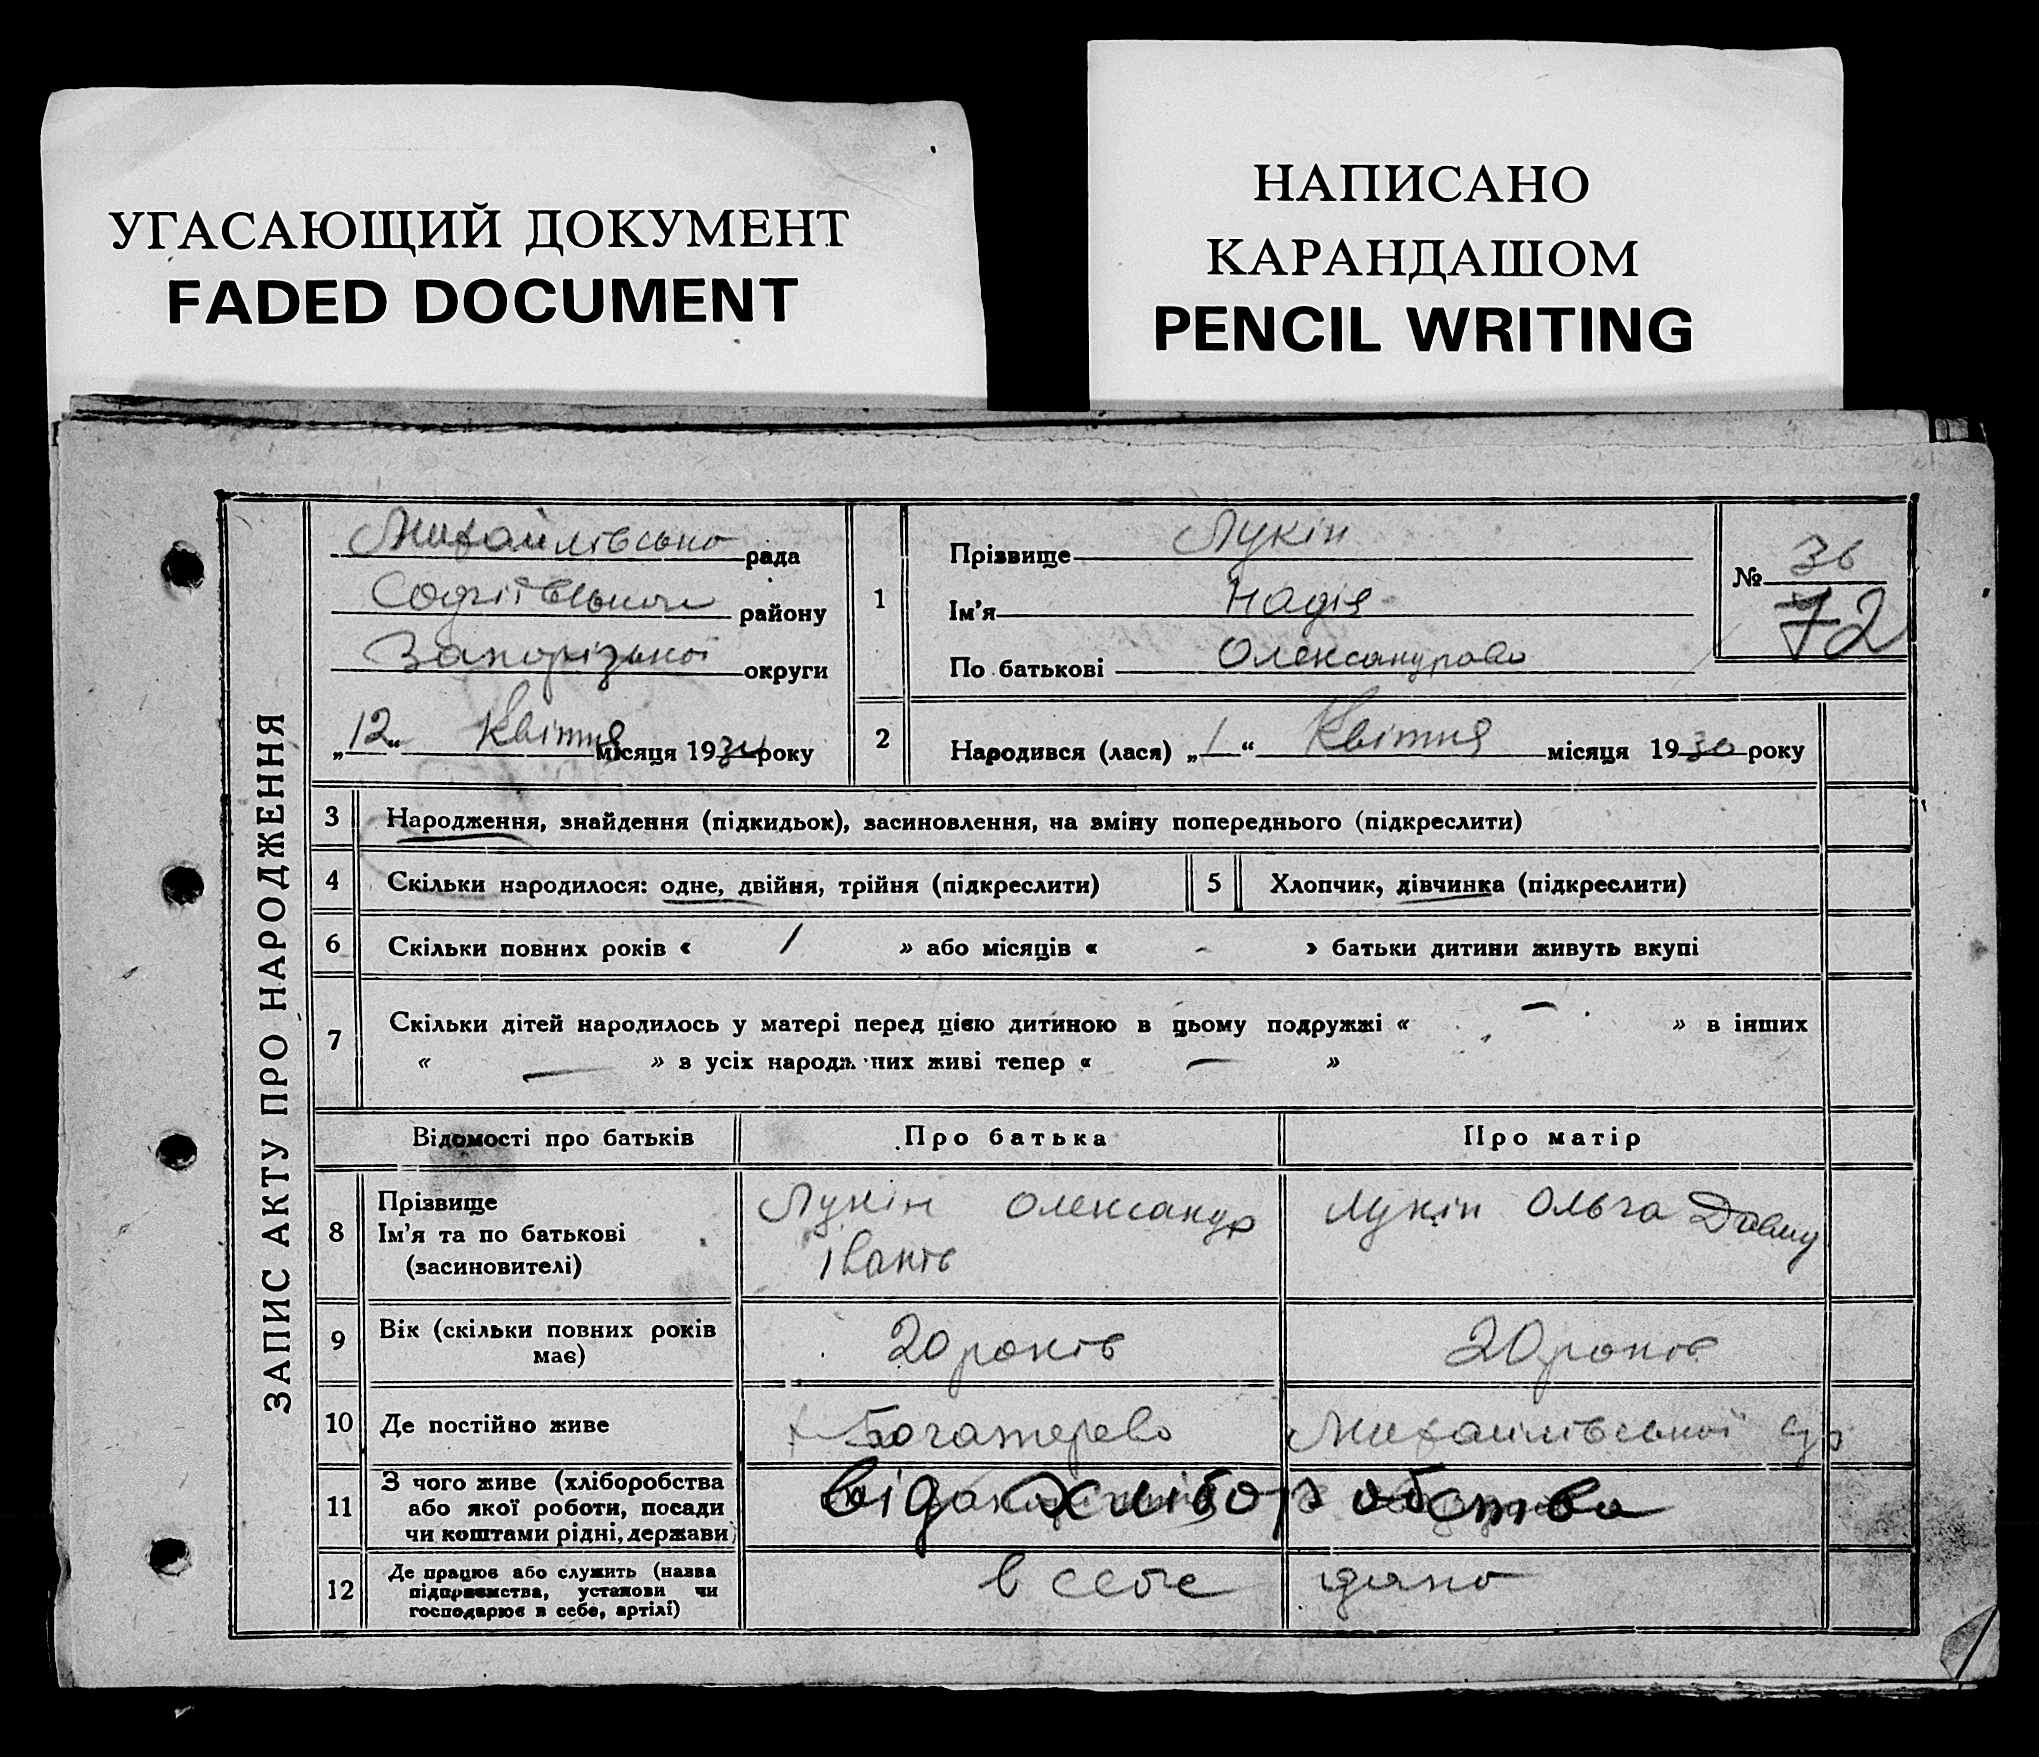 УГАСАЮЩИЙ ДОКУМЕНТ
FADED DOCUMENT
НАПИСАНО
КАРАНДАШОМ
PENCIL WRITING
ЗАПИС АКТУ ПРО НАРОДЖЕННЯ
Михайлівсько рада
Софіївської району
Запорізької округи
„12“ Квітня місяця 1930 року
1
Прізвище Лукін
Ім’я Надія
По батькові Олександрово
№ 36
72
2 Народився (лася) „1“ Квітня місяця 1930 року
3 Народження, знайдення (підкидьок), засиновлення, на зміну попереднього (підкреслити)
4 Скільки народилося: одне, двійня, трійня (підкреслити)
5 Хлопчик, дівчинка (підкреслити)
6 Скільки повних років « 1 » або місяців « - » батьки дитини живуть вкупі
7 Скільки дітей народилось у матері перед цією дитиною в цьому подружжі « — » в інших
« — » з усіх народж них живі тепер « — »
Відомості про батьків
Про батька
Про матір
8 Прізвище
Ім’я та по батькові
(засиновителі)
Лукін Олександр
Іванів
Лукін Ольга
9 Вік (скільки повних років
має)
20 років
20 років
10 Де постійно живе
Богатерево
Михайлівської с/р
11 З чого живе (хліборобства
або якої роботи, посади
чи коштами рідні, держави)
від хліборобства
12 Де працює або служить (назва
підприємства, установи чи
господарює в себе, артілі)
в себе дано